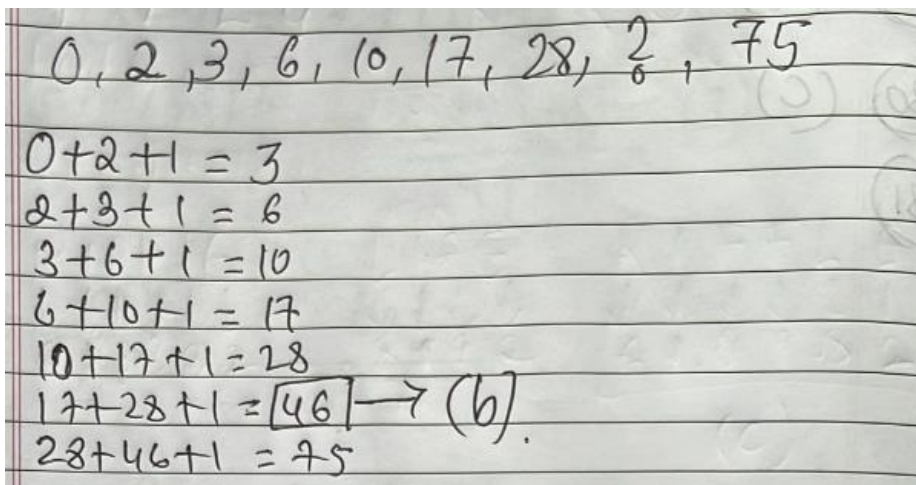 0, 2, 3, 6, 10, 17, 28, ?, 75
0+2+1 = 3
2+3+1 = 6
3+6+1 = 10
6+10+1 = 17
10+17+1 = 28
17+28+1 = 46 → (b).
28+46+1 = 75